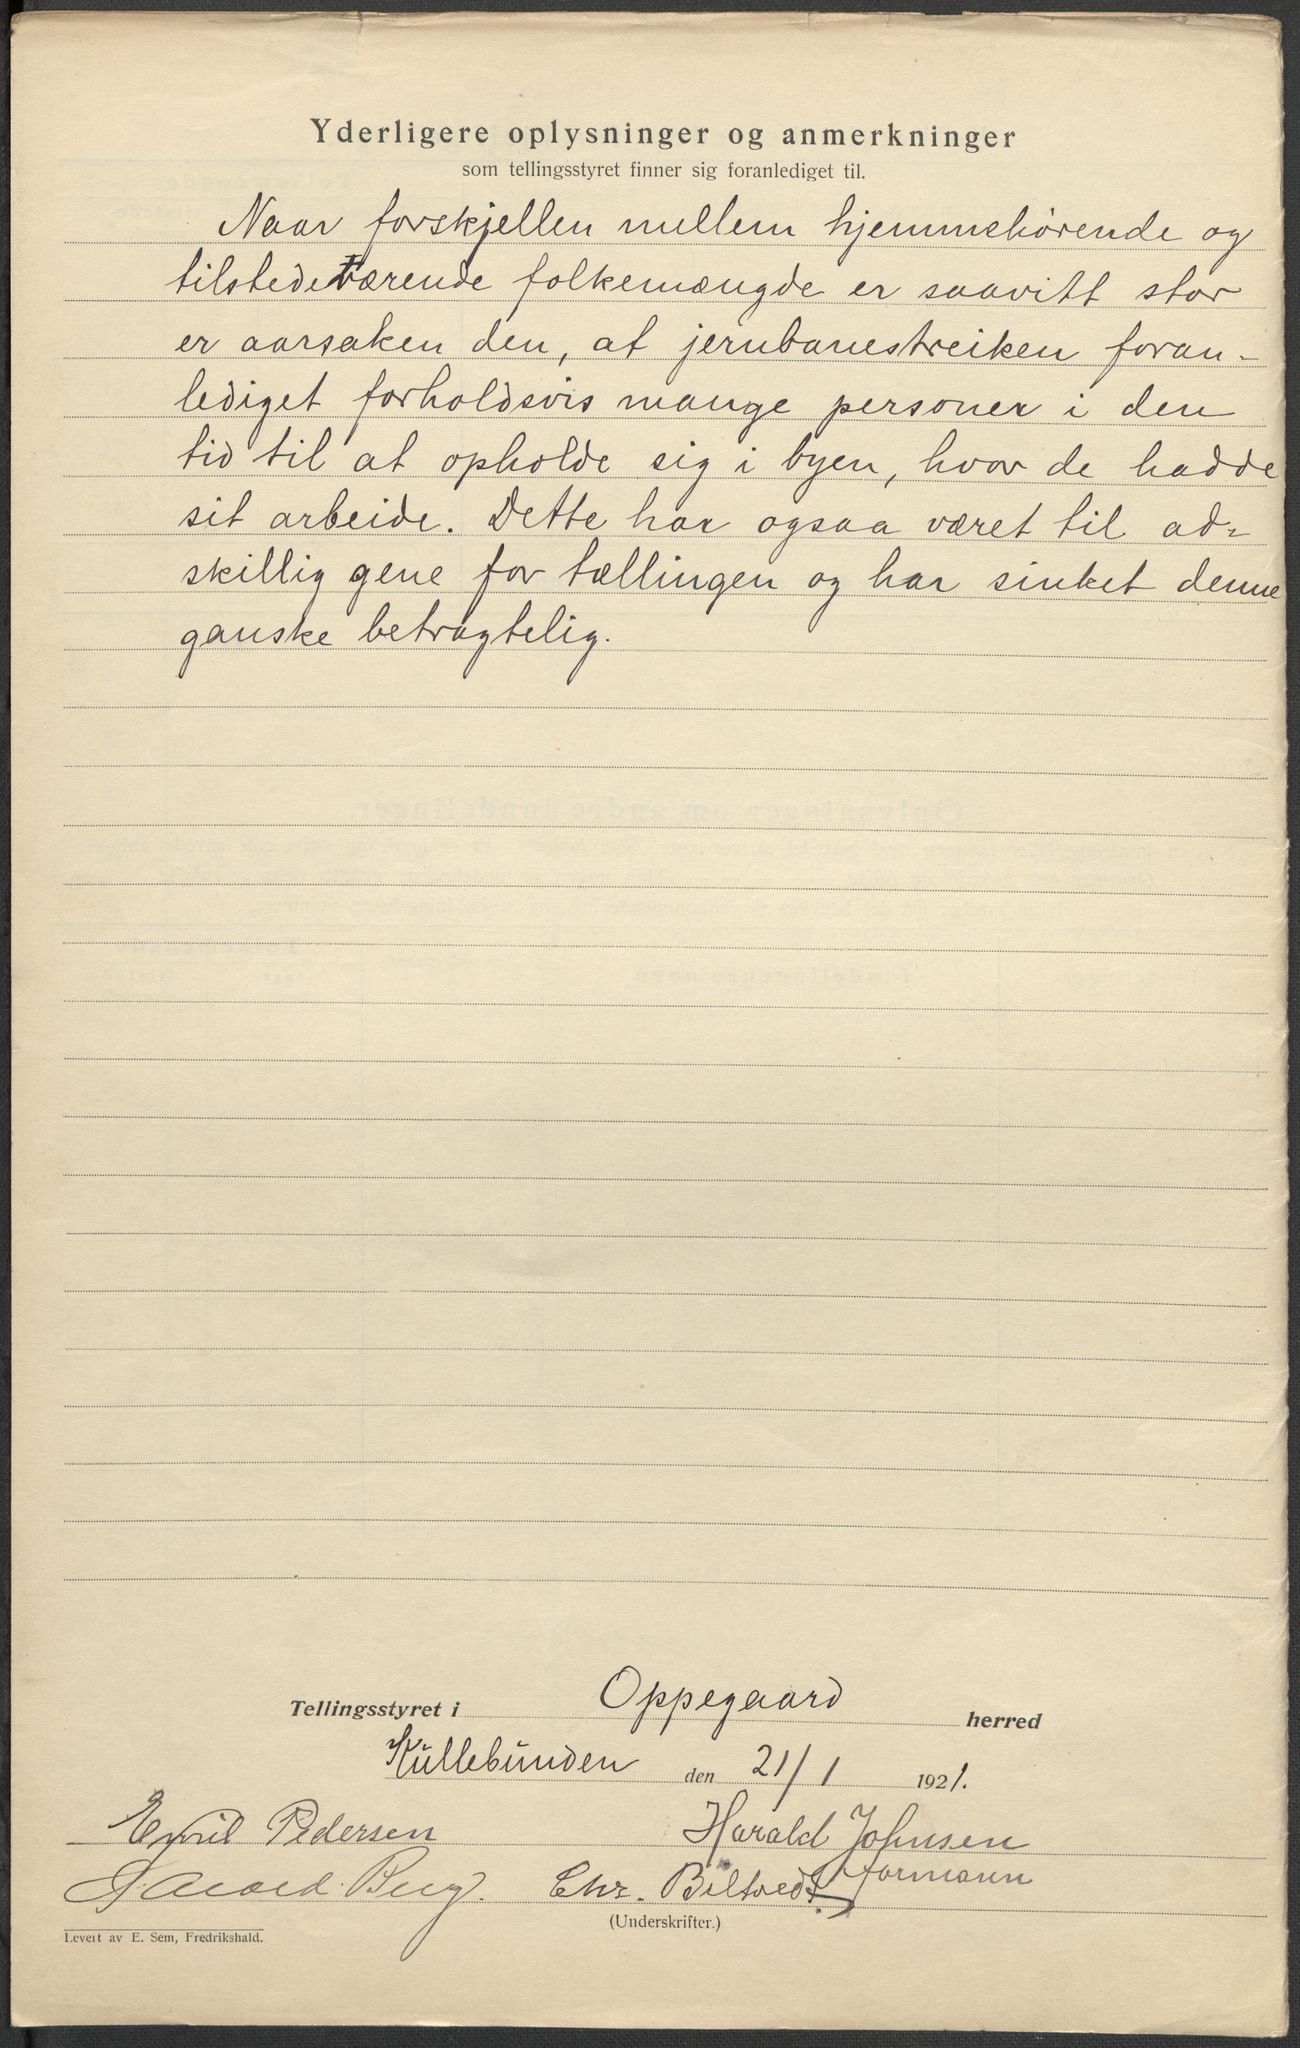 Yderligere oplysninger og anmerkninger
som tellingsstyret finner sig foranlediget til.
Naar forskjellen mellem hjemmehørende og
tilstedeværende folkemængde er saavitt stor
er aarsaken den, at jernbanestreiken foran-
lediget forholdsvis mange personer i den
tid til at opholde sig i byen, hvor de hadde
sit arbeide. Dette har ogsaa været til ad-
skillig gene for tællingen og har sinket denne
ganske betragtelig.
Tellingsstyret i Oppegaard herred
Kullebunden den 21/1 1921.
Emil Pedersen Harald Johnsen
Berg. Chr. Biltvedt formann
(Underskrifter.)
Levert av E. Sem, Fredrikshald.